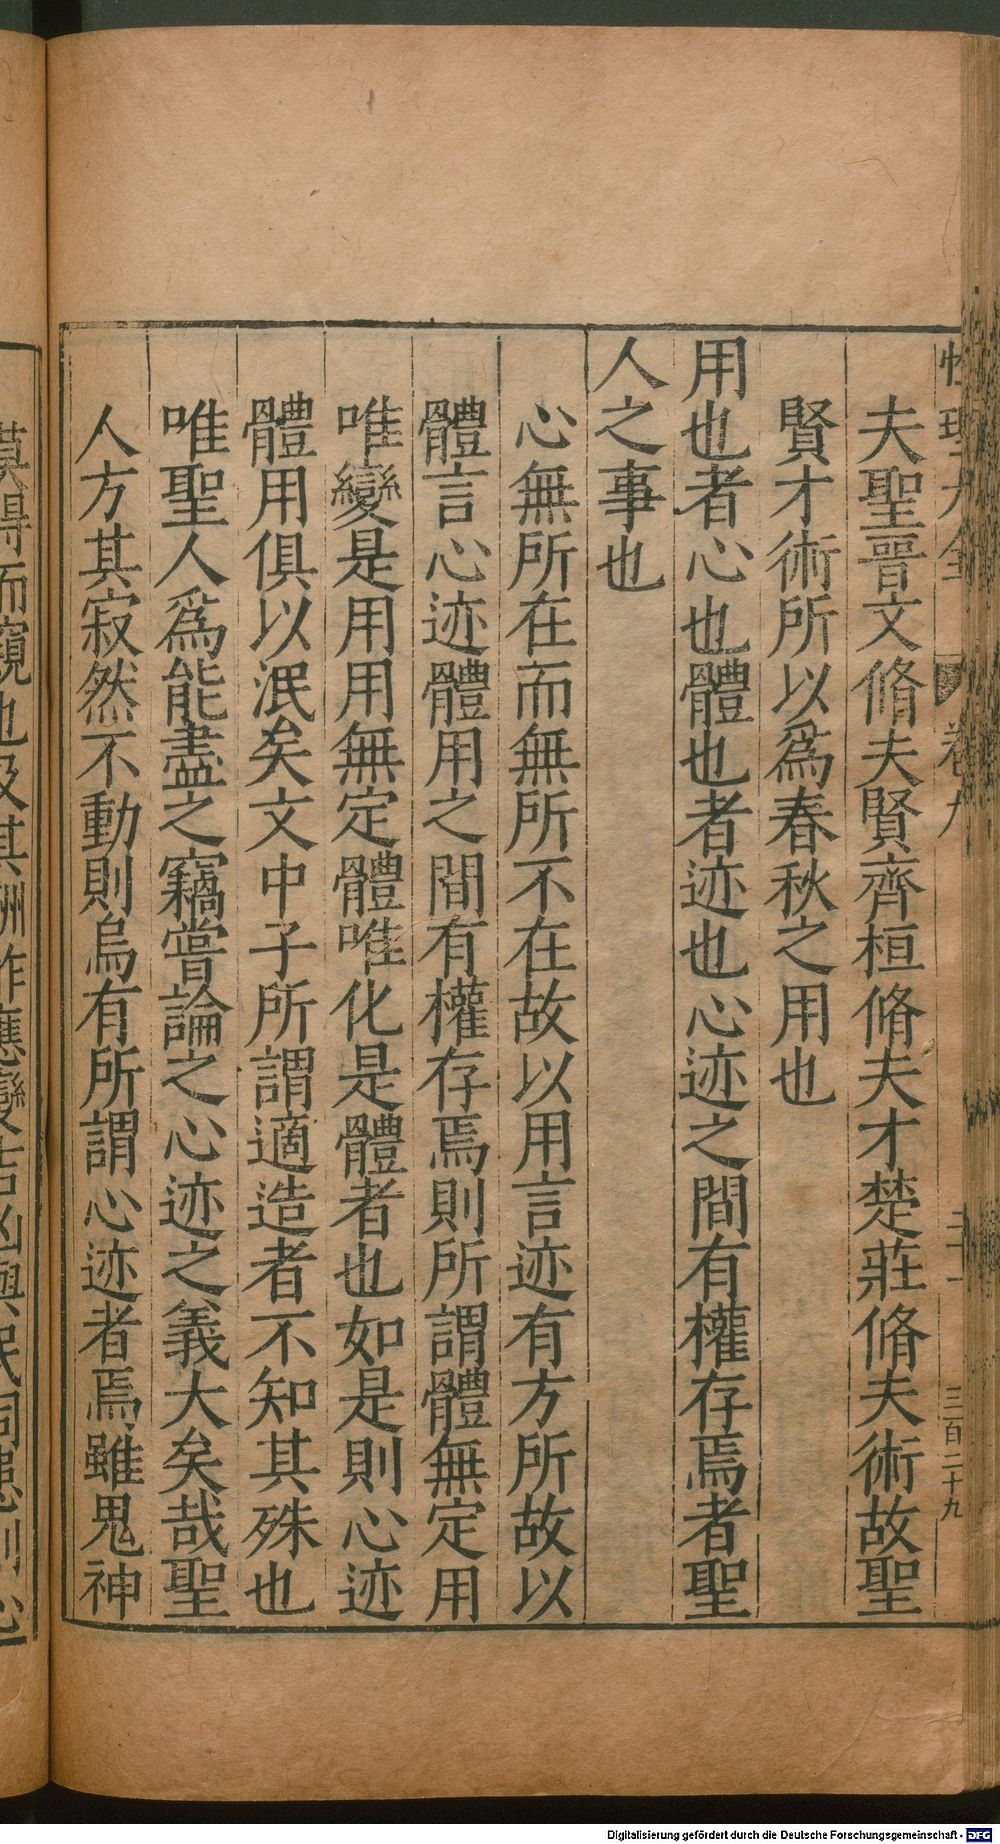 性理大全 卷九 三百二十九
夫聖晉文脩夫賢齊桓脩夫才楚莊脩夫術故聖
賢才術所以爲春秋之用也
用也者心也體也者迹也心迹之間有權存焉者聖
人之事也
心無所在而無所不在故以用言迹有方所故以
體言心迹體用之間有權存焉則所謂體無定用
唯變是用用無定體唯化是體者也如是則心迹
體用俱以泯矣文中子所謂適造者不知其殊也
唯聖人爲能盡之竊嘗論之心迹之義大矣哉聖
人方其寂然不動則烏有所謂心迹者焉雖鬼神
莫得而窺也及其酬酢應變吉凶與民同患則心
Digitalisierung gefördert durch die Deutsche Forschungsgemeinschaft - DFG